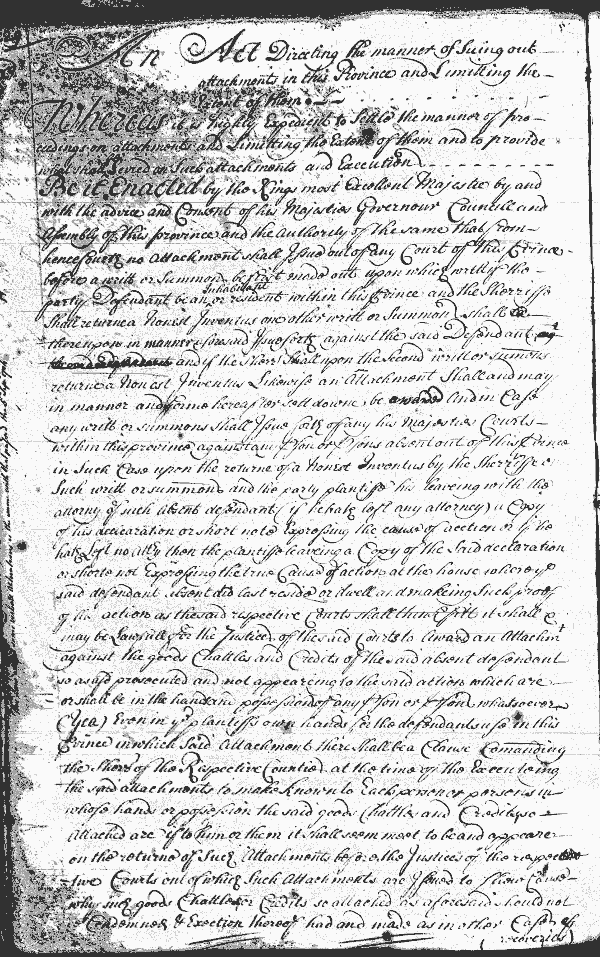 An Act Directing the manner of Suing out
attachments in this Province and Limitting the
Extent of them
Whereas it is highly Expedient to Settle the manner of pro-
ceedings on attachments and Limitting the Extent of them and to provide
what shall be Levied on Such attachments and Execution
Be it Enacted by the Kings most Excellent Majestie by and
with the advice and Consent of his Majesties Governour Councill and
Assembly of this province and the Authority of the same that from
henceforth no Attachment shall Issue out of any Court of this Prince
before a writt or Summons be first made out upon which writt if the
party Defendant be an Inhabitant or resident within this Prince and the Sherriffe
Shall returne a Nonest Inventus one other writt or Summons shall
thereupon in manner aforesaid Issue forth against the said Defendant
and if the Sherr Shall upon the Second writt or sumons
returne a Nonest Inventus Likewise an Attachment Shall and may
in manner and forme hereafter sett downe be award And in Case
any writt or summons shall Issue forth of any his Majesties Courts
within this province against any pson or psons absent out of this Prince
in Such Case upon the returne of a Nonest Inventus by the Sherriffe o
Such writt or summons and the party plantiffe his leaving with the
attorny of such absent defendant (if he hath left any attorney) a Copy
of his decleration or short note Expressing the cause of action or if he
hath Left no atty then the plantiffe leaveing a Copy of the Said declaration
or shorte not Expressing the true Cause of action at the house where ye
said defendant absent did last reside or dwell and makeing Such proof
of his action as the said respective Courts shall think fitt it shall &
may be Lawfull for the Justices of the said Courts to Award an Attachmt
against the goods Chattles and Credits of the said absent defendant
so as afd prosecuted and not appearing to the said action which are
or shall be in the hands and possession of any pson or psons whatsoever
(Yea) Even in ye plantiffs own hands for the defendants use in this
Prince in which Said Attachment there shall be a Clause Comanding
the Sherr of the Respective Counties at the time of the Executeing
the said attachments to make known to Each person or persons in
whose hands or posession the said goods Chattles and Credits so
attached are if to him or them it shall seem meet to be and appeare
on the returne of Such Attachments before the Justices of the respec
tive Courts out of which Such Attachments are Issued to Shew Cause
why such goods Chattles or Credits so attached as aforesaid should not
Condemned & Execution thereof had and made as in other Cases of
(recoveries)